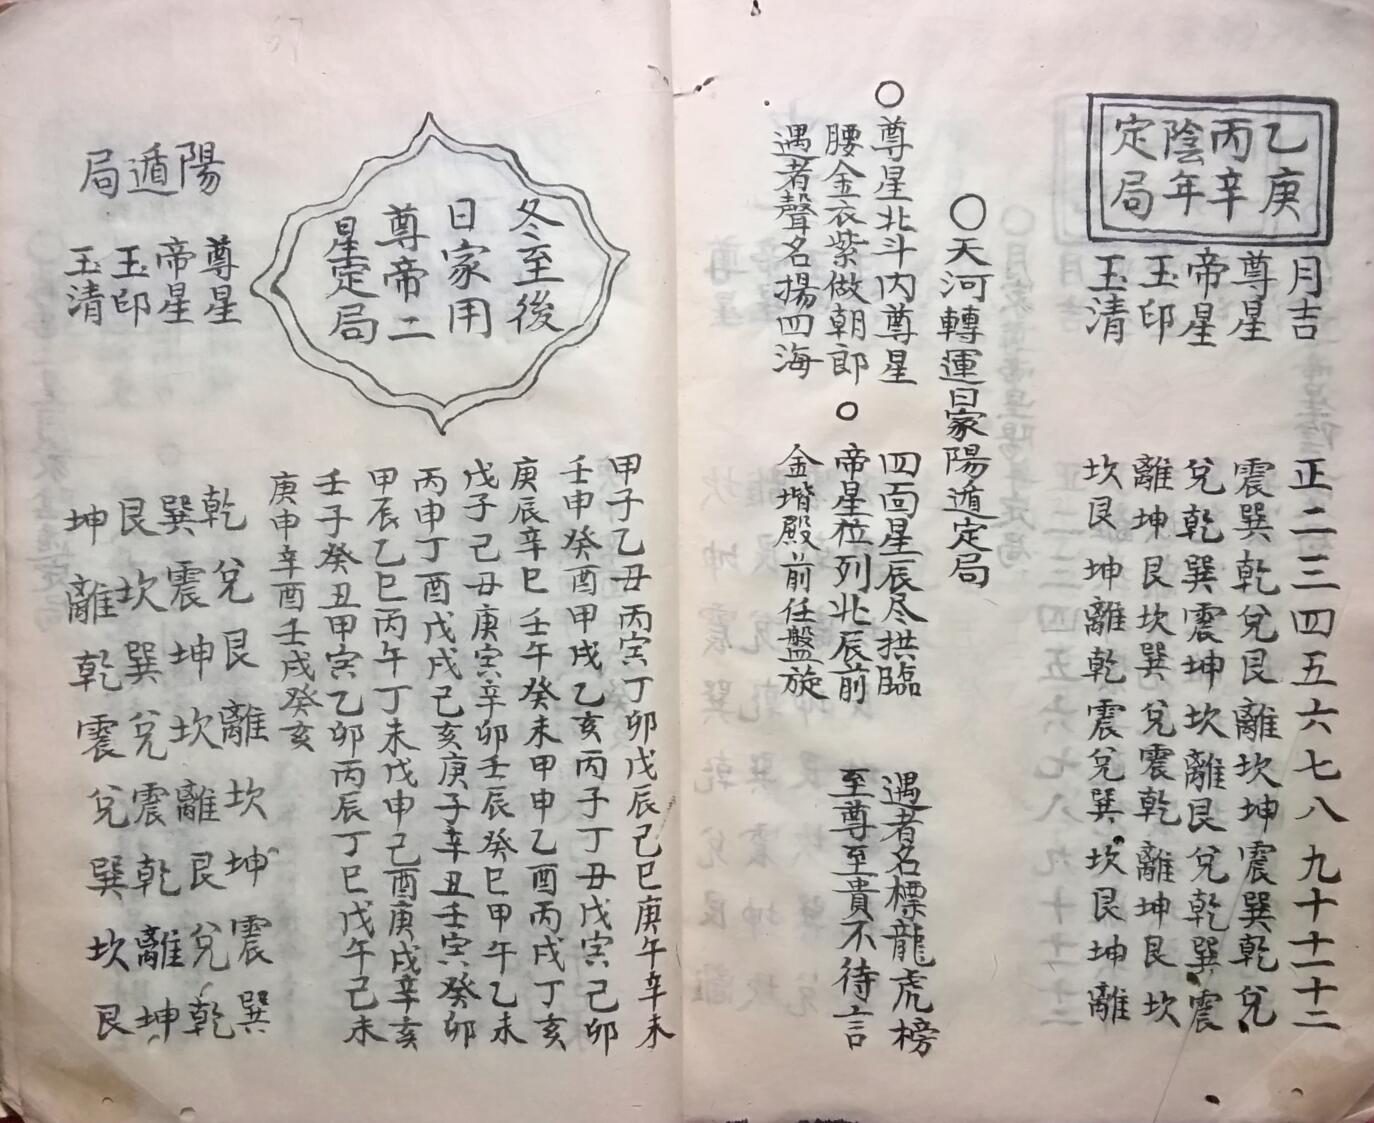 乙庚
丙辛
陰年
定局
月吉 正二三四五六七八九十十一十二
尊星 震巽乾兌艮離坎坤震巽乾兌
帝星 兌乾巽震坤坎離艮兌乾巽震
玉印 離坤艮坎巽兌震乾離坤艮坎
玉清 坎艮坤離乾震兌巽坎艮坤離
○天河轉運日家陽遁定局
○尊星北斗内尊星 四面星辰尽拱臨 遇者名標龍虎榜
腰金衣紫做朝郎 ○ 帝星位列北辰前 至尊至貴不待言
遇者聲名揚四海 金堦殿前任盤旋
冬至後
日家用
尊帝二
星定局
甲子乙丑丙寅丁卯戊辰己巳庚午辛未
壬申癸酉甲戌乙亥丙子丁丑戊寅己卯
庚辰辛巳壬午癸未甲申乙酉丙戌丁亥
戊子己丑庚寅辛卯壬辰癸巳甲午乙未
丙申丁酉戊戌己亥庚子辛丑壬寅癸卯
甲辰乙巳丙午丁未戊申己酉庚戌辛亥
壬子癸丑甲寅乙卯丙辰丁巳戊午己未
庚申辛酉壬戌癸亥
陽遁局
尊星 乾兌艮離坎坤震巽
帝星 巽震坤坎離艮兌乾
玉印 艮坎巽兌震乾離坤
玉清 坤離乾震兌巽坎艮